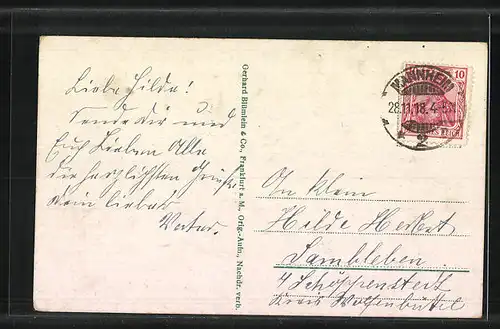 Liebe Hilda!
Sende Dir und
Euch Lieben Alle
die herzlichsten Grüße
Dein lieber
Vater.
Gerhard Blümlein & Co., Frankfurt a. M., Orig.-Aufn., Nachdr. verb.
MANNHEIM
28.11.18. 4-5N
* 2
10
REICH
An Klein
Hilde Herbst
Sambleben
b/Schöppenstedt
Kreis Wolfenbüttel